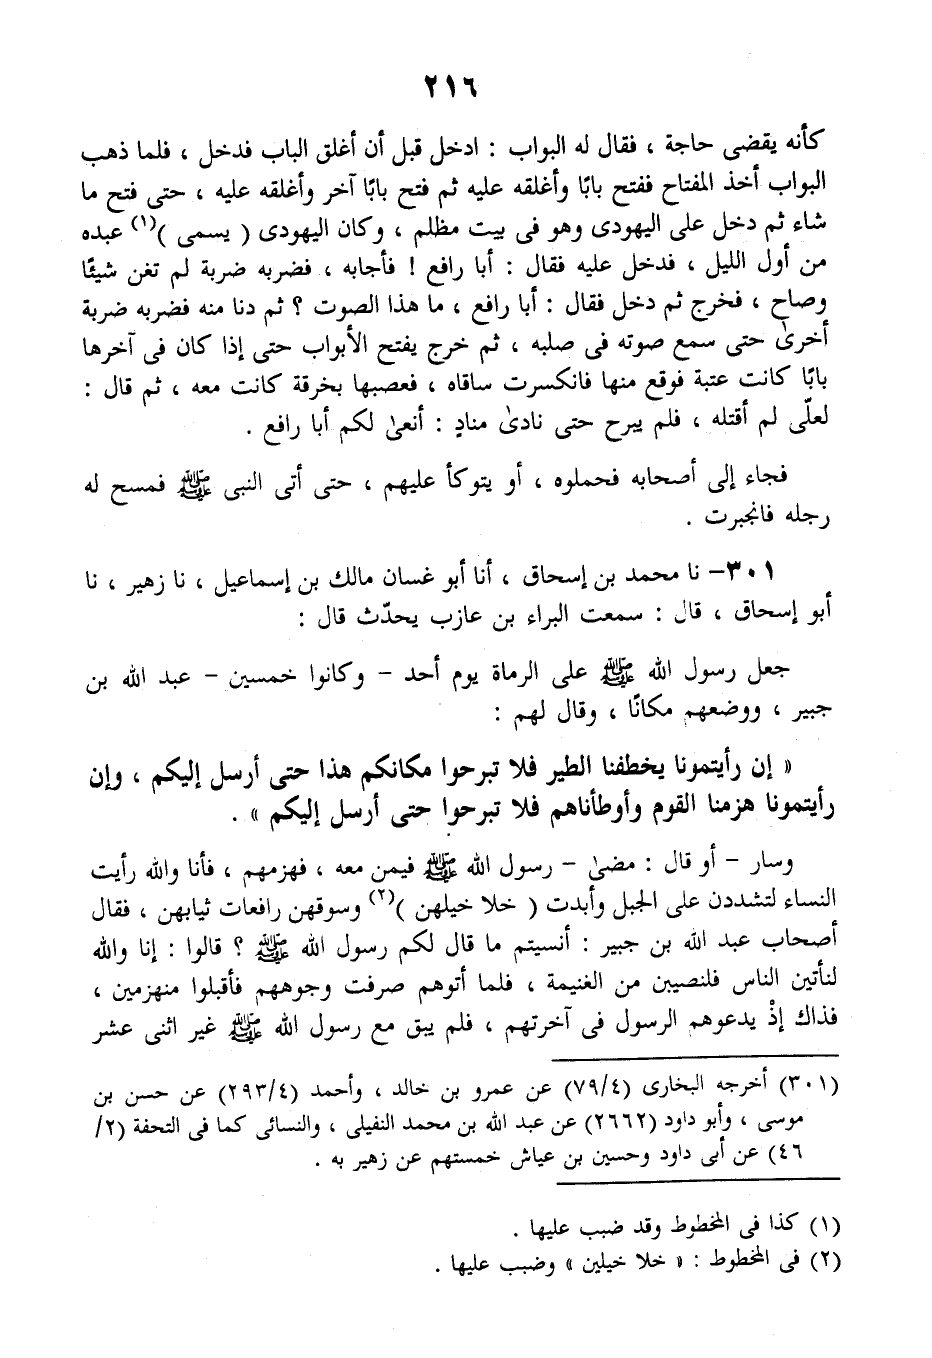 ٢١٦
كأنه يقضى حاجة ، فقال له البواب : ادخل قبل أن أغلق الباب فدخل ، فلما ذهب
البواب أخذ المفتاح ففتح بابًا وأغلقه عليه ثم فتح بابًا آخر وأغلقه عليه ، حتى فتح ما
شاء ثم دخل على اليهودى وهو فى بيت مظلم ، وكان اليهودى ( يسمى )(١) عبده
من أول الليل ، فدخل عليه فقال : أبا رافع ! فأجابه ، فضربه ضربة لم تغن شيئًا
وصاح ، فخرج ثم دخل فقال : أبا رافع ، ما هذا الصوت ؟ ثم دنا منه فضربه ضربة
أخرىٰ حتى سمع صوته فى صلبه ، ثم خرج يفتح الأبواب حتى إذا كان فى آخرها
بابًا كانت عتبة فوقع منها فانكسرت ساقاه ، فعصبها بخرقة كانت معه ، ثم قال :
لعلّى لم أقتله ، فلم يبرح حتى نادىٰ منادٍ : أنعىٰ لكم أبا رافع .
فجاء إلى أصحابه فحملوه ، أو يتوكأ عليهم ، حتى أتى النبى ﷺ فمسح له
رجله فانجبرت .
٣٠١– نا محمد بن إسحاق ، أنا أبو غسان مالك بن إسماعيل ، نا زهير ، نا
أبو إسحاق ، قال : سمعت البراء بن عازب يحدّث قال :
جعل رسول الله ﷺ على الرماة يوم أحد – وكانوا خمسين – عبد الله بن
جبير ، ووضعهم مكانًا ، وقال لهم :
« إن رأيتمونا يخطفنا الطير فلا تبرحوا مكانكم هذا حتى أرسل إليكم ، وإن
رأيتمونا هزمنا القوم وأوطأناهم فلا تبرحوا حتى أرسل إليكم » .
وسار – أو قال : مضىٰ – رسول الله ﷺ فيمن معه ، فهزمهم ، فأنا والله رأيت
النساء لتشددن على الجبل وأبدت ( خلا خيلهن )(٢) وسوقهن رافعات ثيابهن ، فقال
أصحاب عبد الله بن جبير : أنسيتم ما قال لكم رسول الله ﷺ ؟ قالوا : إنا والله
لنأتين الناس فلنصيبن من الغنيمة ، فلما أتوهم صرفت وجوههم فأقبلوا منهزمين ،
فذاك إذْ يدعوهم الرسول فى آخرتهم ، فلم يبق مع رسول الله ﷺ غير اثنى عشر
(٣٠١) أخرجه البخارى (٧٩/٤) عن عمرو بن خالد ، وأحمد (٢٩٣/٤) عن حسن بن
موسى ، وأبو داود (٢٦٦٢) عن عبد الله بن محمد النفيلى ، والنسائى كما فى التحفة (٢/
٤٦) عن أبى داود وحسين بن عياش خمستهم عن زهير به .
(١) كذا فى المخطوط وقد ضبب عليها .
(٢) فى المخطوط : « خلا خيلين » وضبب عليها .